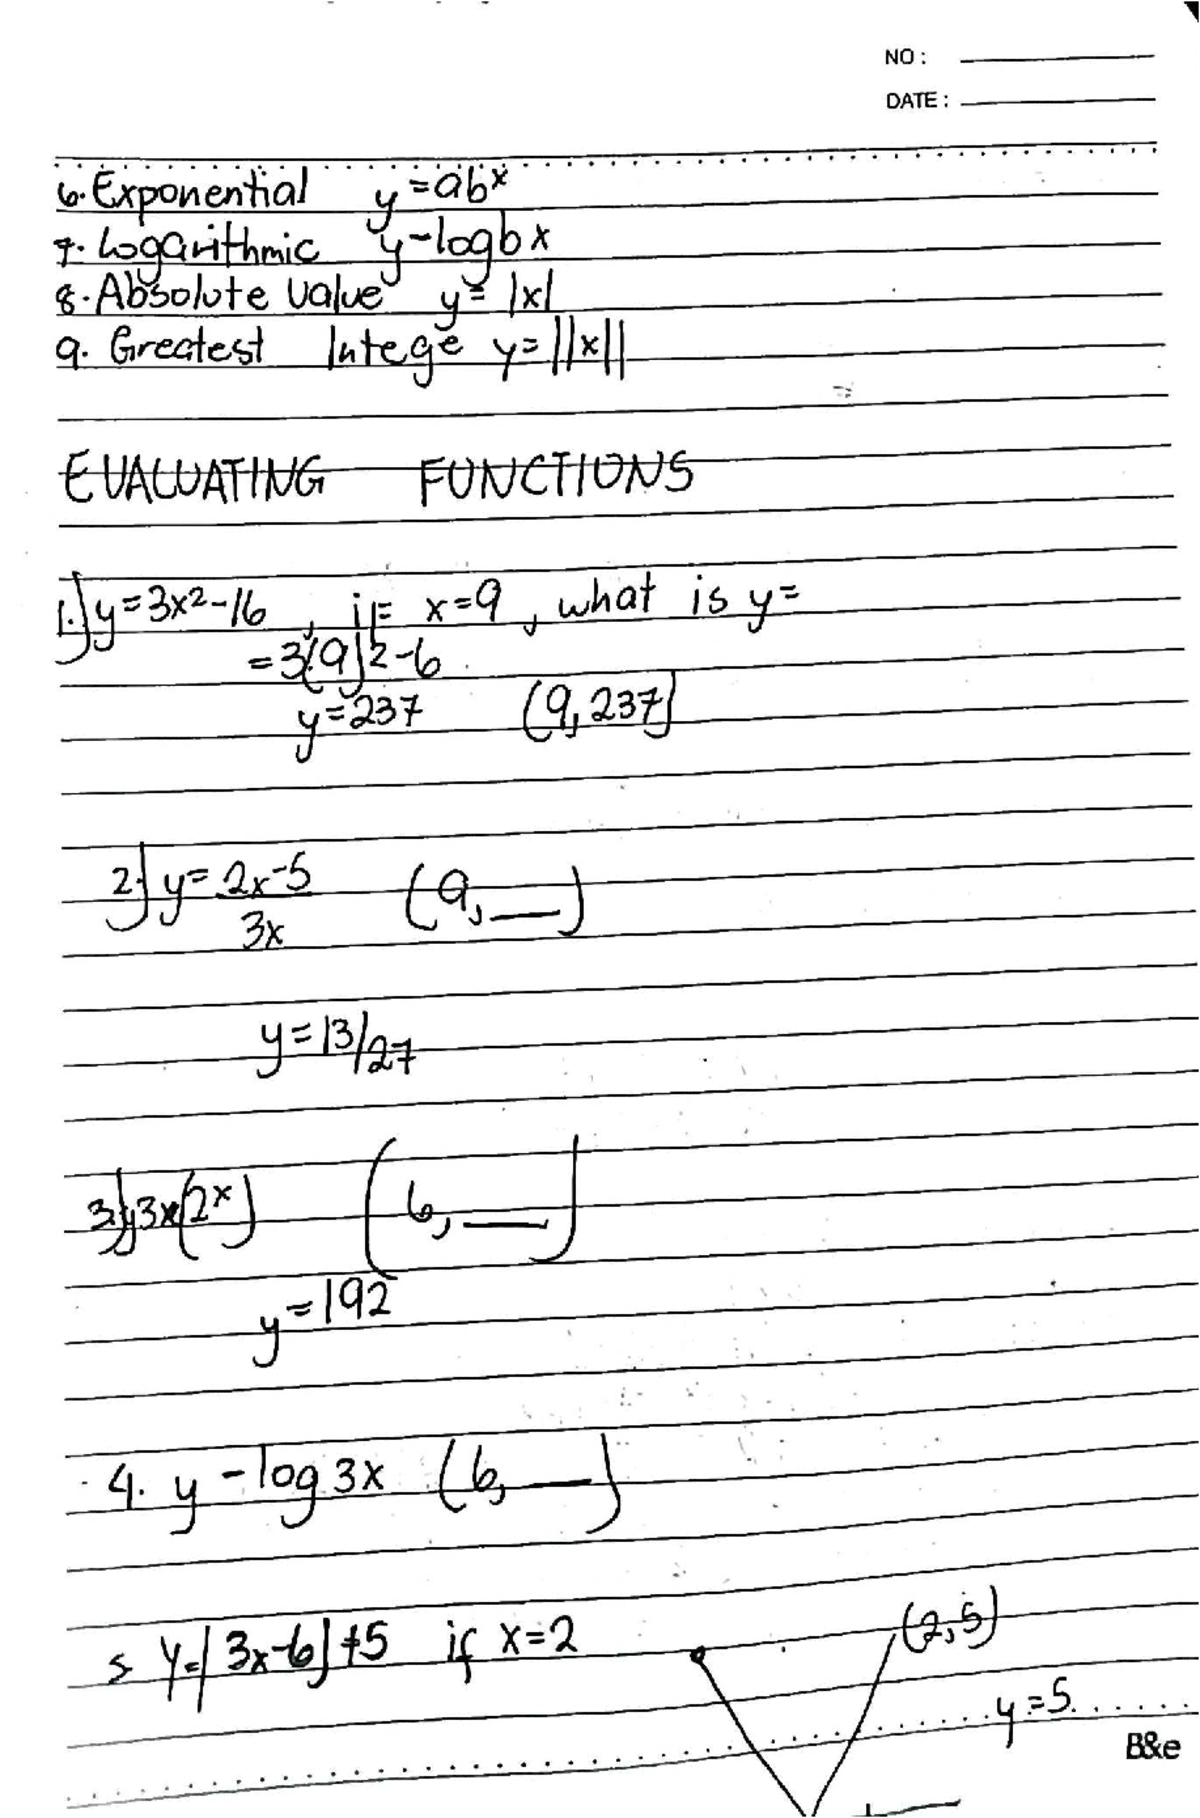 NO :
DATE :
6. Exponential y = ab^x
7. Logarithmic y - log b x
8. Absolute Value y = |x|
9. Greatest Intege y = ||x||
EVALUATING FUNCTIONS
1.) y = 3x2 - 16 , if x = 9 , what is y =
= 3(9)2 - 6
y = 237 (9, 237)
2.) y = 2x - 5 / 3x (9, __)
y = 13/27
3.) y 3x(2^x) (6, __)
y = 192
4. y - log 3x (6, __)
5. y = |3x - 6| + 5 if x = 2
(2,5)
y = 5
B&e